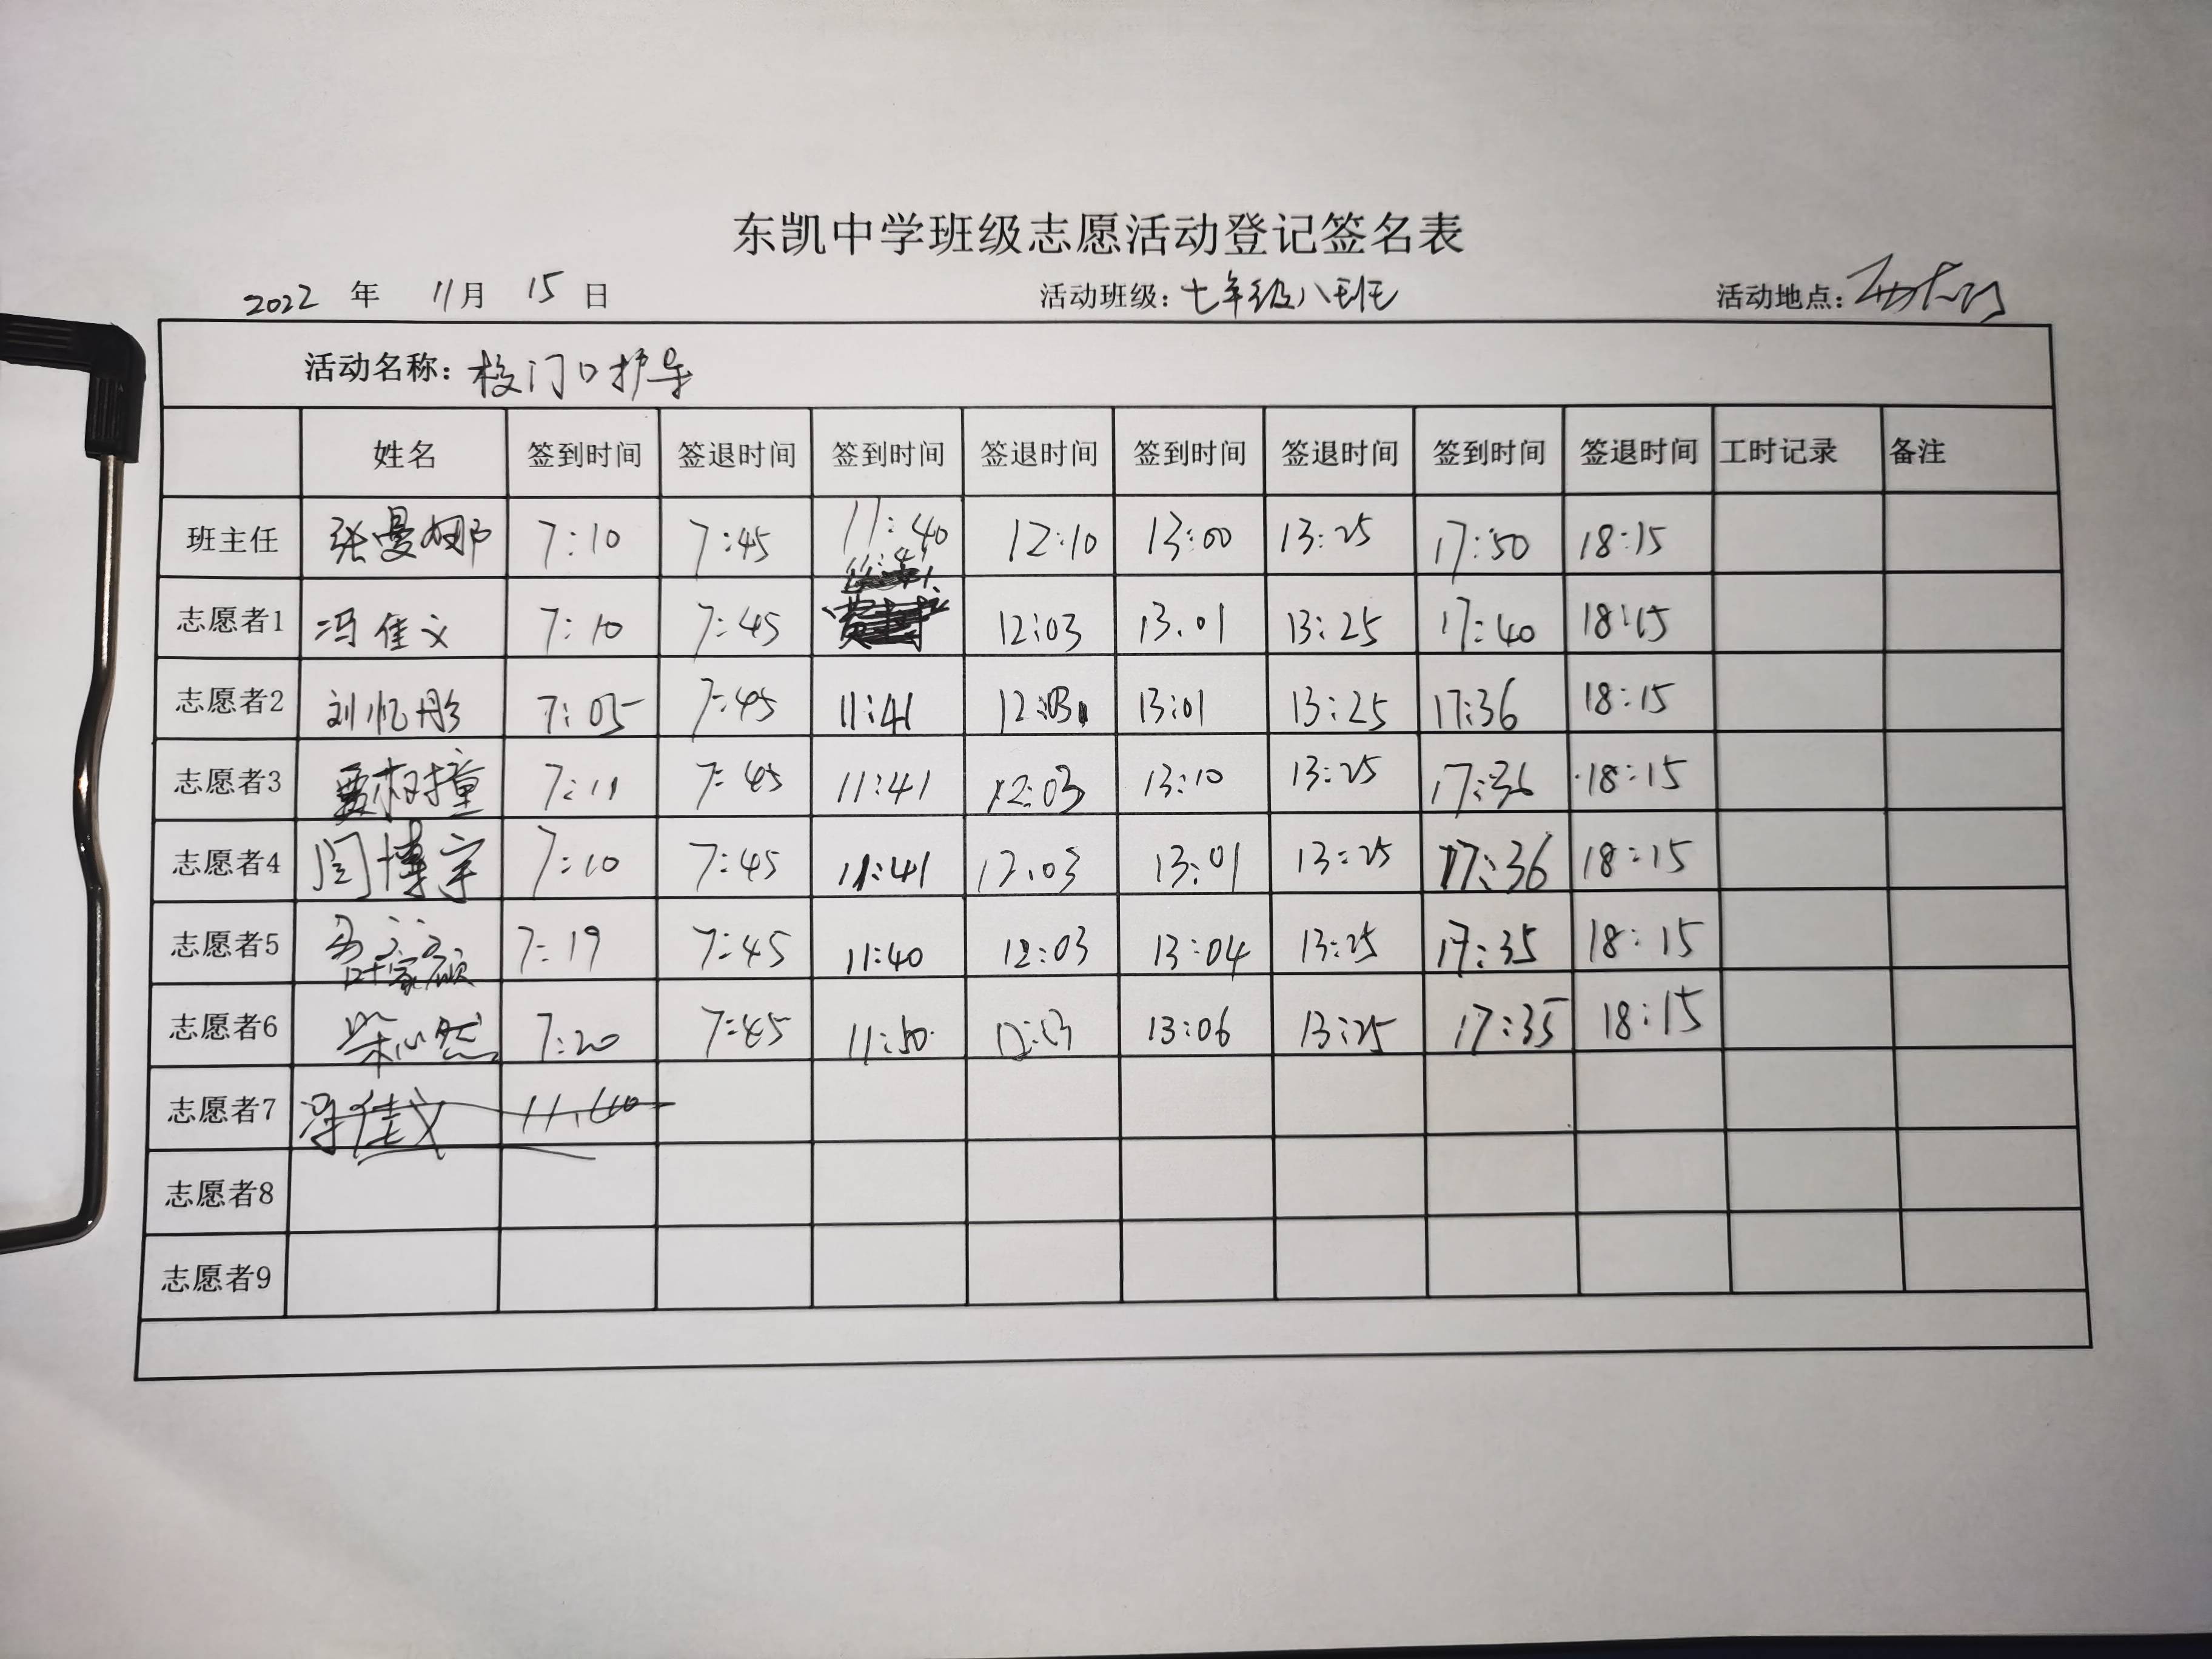 东凯中学班级志愿活动登记签名表
2022 年 11月 15 日 活动班级：七年级八班 活动地点：
活动名称：校门口护导
姓名 签到时间 签退时间 签到时间 签退时间 签到时间 签退时间 签到时间 签退时间 工时记录 备注
班主任 张曼娜 7:10 7:45 11:40 12:10 13:00 13:25 17:50 18:15
志愿者1 冯佳文 7:10 7:45 12:03 13.01 13:25 17:40 18:15
志愿者2 刘忆彤 7:05 7:45 11:41 12:03 13:01 13:25 17:36 18:15
志愿者3 7:11 7:45 11:41 12:03 13:10 13:25 17:36 18:15
志愿者4 闫博宇 7:10 7:45 11:41 12.03 13:01 13:25 17:36 18:15
志愿者5 7:19 7:45 11:40 12:03 13:04 13:25 17:35 18:15
志愿者6 柴心然 7:20 7:45 11:50 12:03 13:06 13:25 17:35 18:15
志愿者7 冯佳文
志愿者8
志愿者9